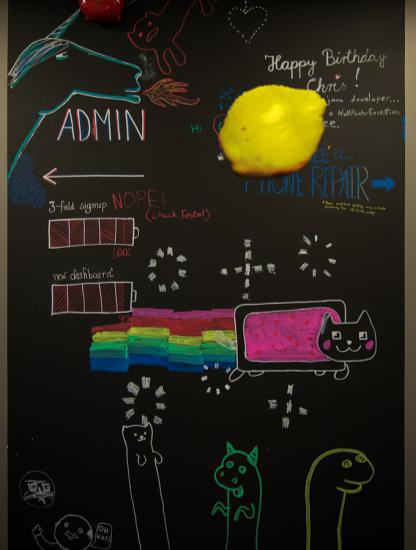 Happy Birthday
Chris!
java developer...
a NullPointerException
ee.
Hi
ADMIN
PHONE REPAIR
3-field signup NOPE!
(Chuck Testa!)
100%
new dashboard
OH
HAI!